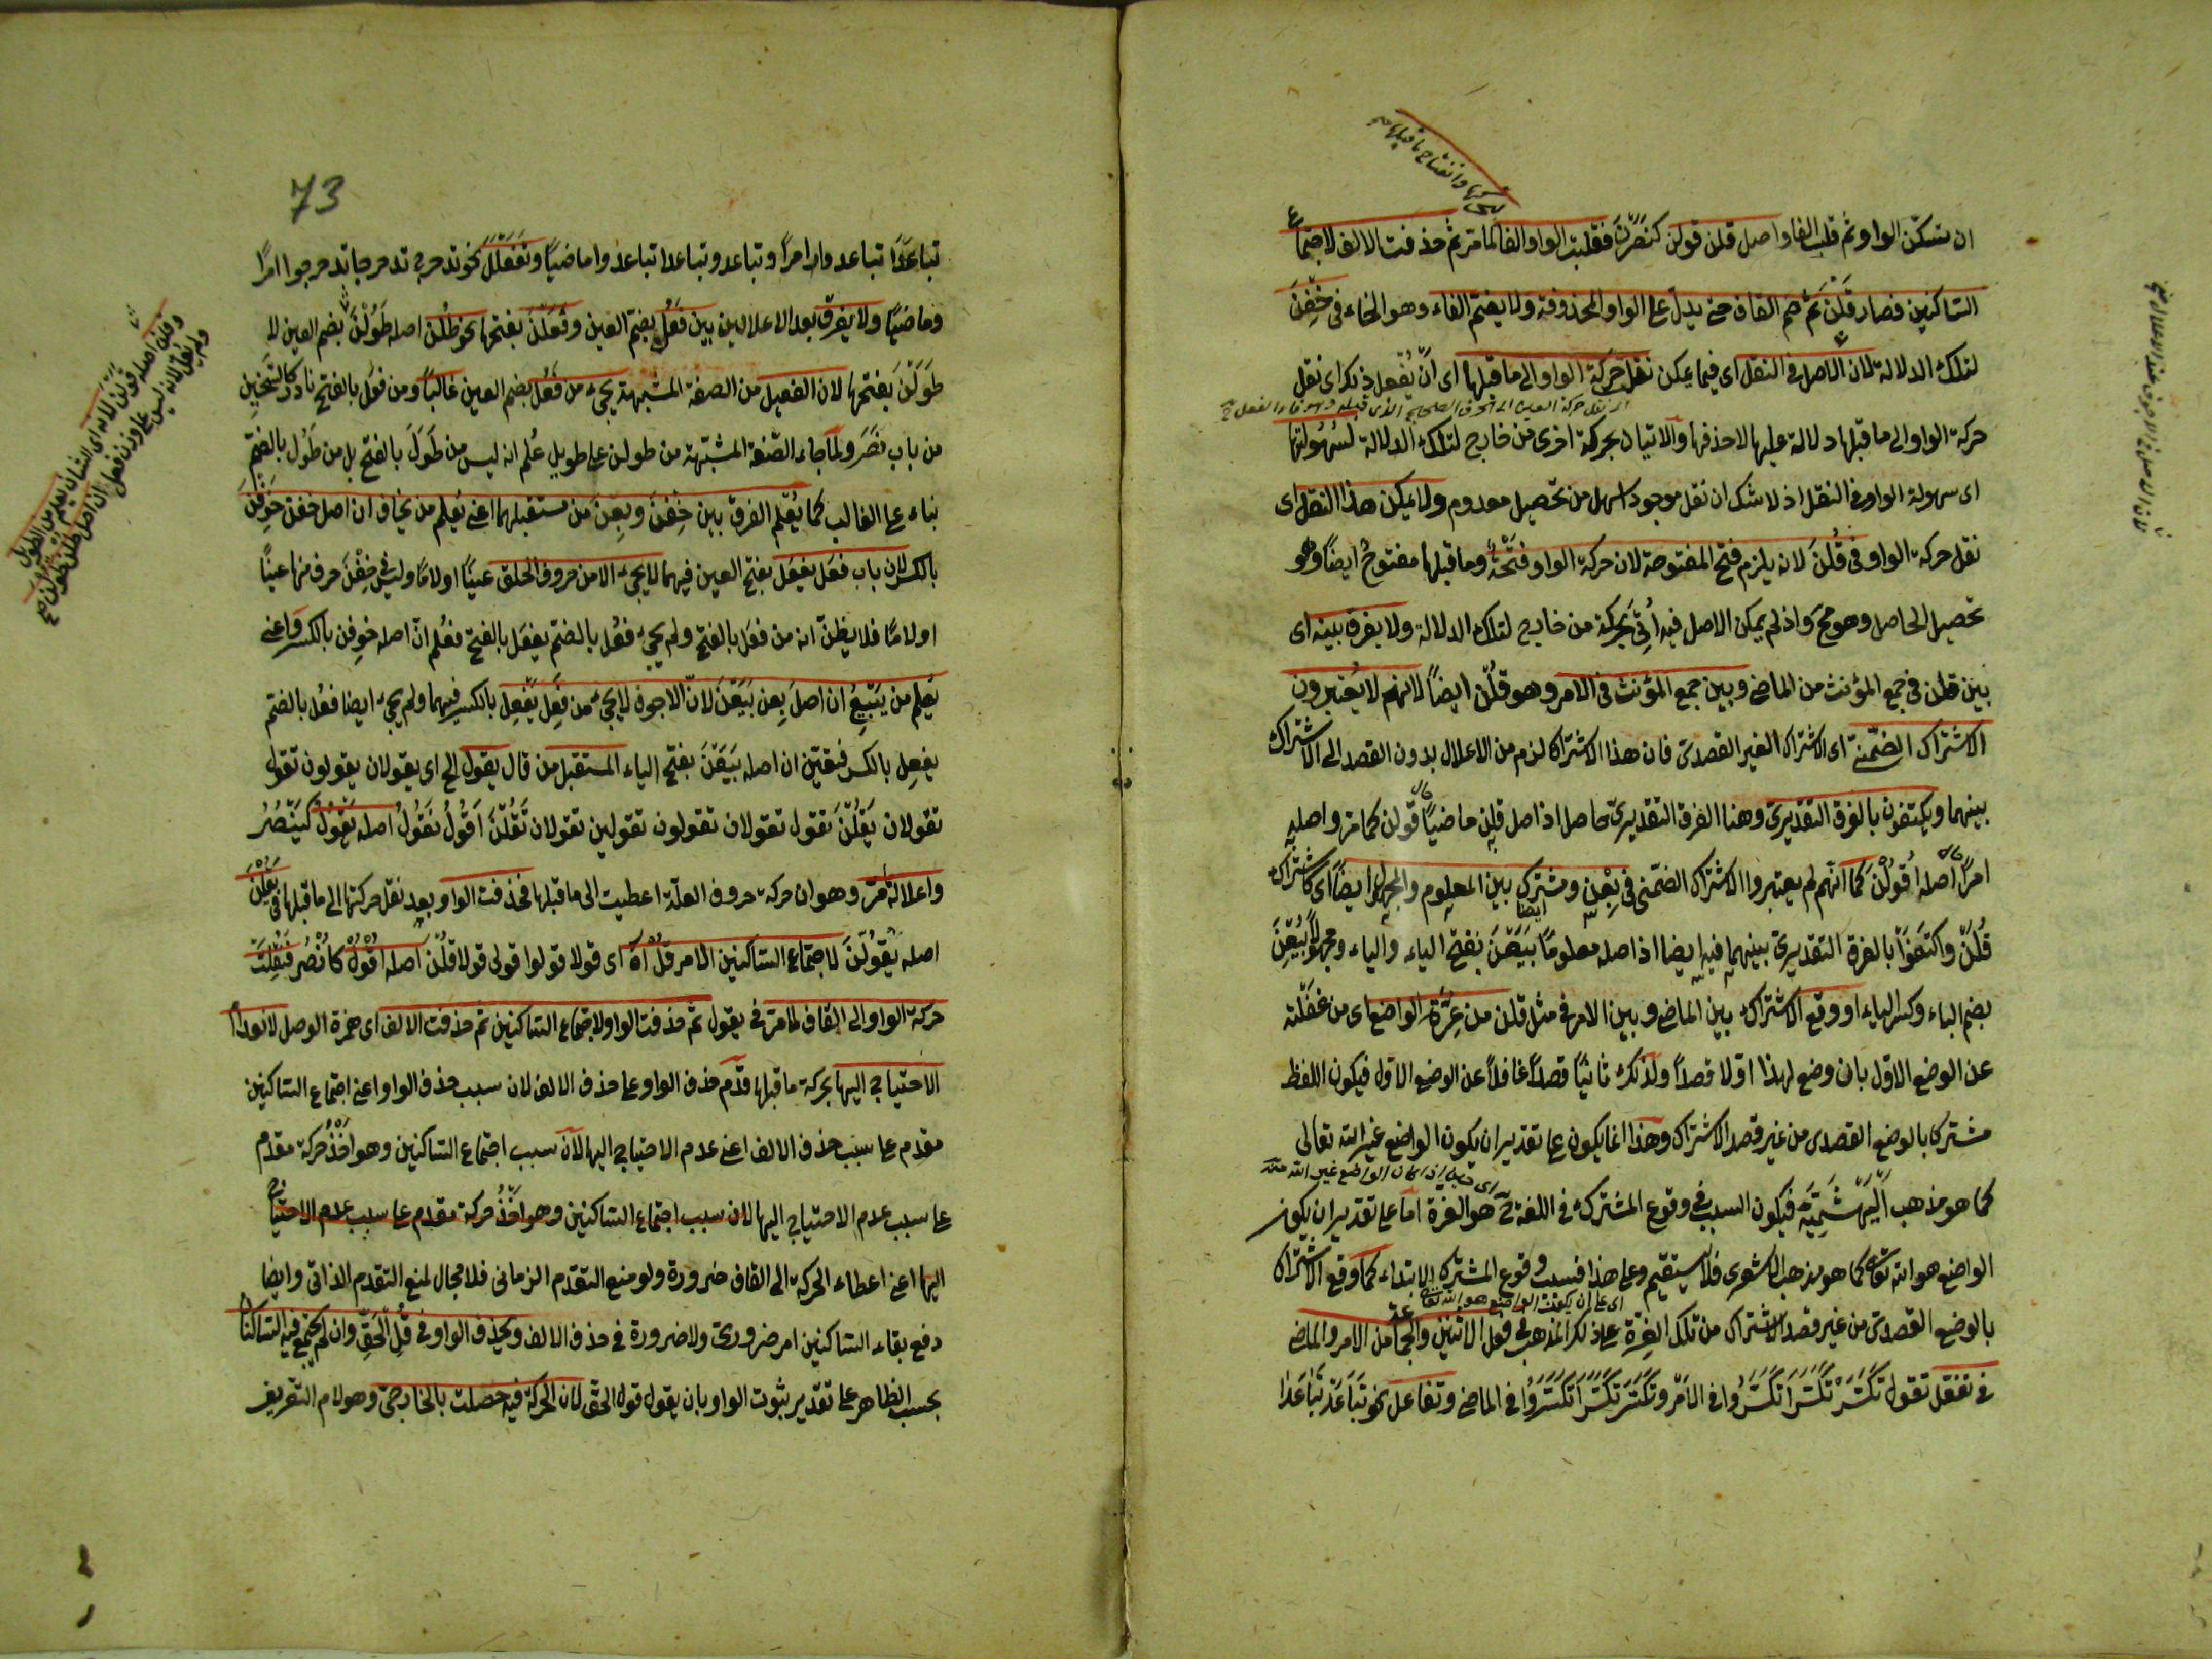 ان تسكن الواو ثم قلب الفا واصل قلن قولن كنصرن فقلبت الواو الفا لما مر ثم حذفت الالف لاجتماع
الساكنين فصار قلن ثم ضم القاف حتى يدل على الواو المحذوفة ولا يضم الفاء وهو الخاء في خفن
لتلك الدلالة لان الاصل في النقل اي فيما يمكن نقل حركة الواو الى ما قبلها اي ان يفعل ذلك اي نقل
حركة الواو الى ما قبلها دلالة عليها لا حذفها والاتيان بحركة اخرى من خارج لتلك الدلالة لسهولتها
اى سهولة الواو في النقل اذ لا شك ان نقل موجود اسهل من تحصيل معدوم ولا يمكن هذا النقل اى
نقل حركة الواو في قلن لانه يلزم فتح المفتوحة لان حركة الواو فتحة وما قبلها مفتوح ايضا وهو
تحصيل الحاصل وهو مح واذ لم يمكن الاصل فيه أتى بحركة من خارج لتلك الدلالة ولا يفرق بينه اى
بين قلن في جمع المؤنث من الماضي وبين جمع المؤنث في الامر وهو قلن ايضا لانهم لا يعتبرون
الاشتراك الضمني اى الاشتراك الغير القصدى فان هذا الاشتراك لزم من الاعلال بدون القصد الى الاشتراك
بينهما ويكتفون بالفرق التقديرى وهنا الفرق التقديرى حاصل اذ اصل قلن ماضيا قولن كما مر واصله
امرا اصله اقولن كما انهم لم يعتبروا الاشتراك الضمنى في بعن ومشترك بين المعلوم والمجهول ايضا اى كاشتراك
قلن واكتفوا بالفرق التقديرى بينهما فيه ايضا اذ اصله معلوما بيعن بفتح الباء والياء ومجهولا بيعن
بضم الباء وكسر الياء او وقع الاشتراك بين الماضي وبين الامر في مثل قلن من غرة الواضع اى من غفلته
عن الوضع الاول بان وضع لهذا اولا قصدا ولذلك ثانيا قصدا غافلا عن الوضع الاول فيكون اللفظ
مشتركا بالوضع القصدى من غير قصد الاشتراك وهذا انما يكون على تقدير ان يكون الواضع غير الله تعالى
كما هو مذهب البهشمية فيكون السبب في وقوع المشترك في اللغة ح هو الغرة اما على تقدير ان يكون
الواضع هو الله تعالى كما هو مذهب الاشعرى فلا يستقيم وعلى هذا فسبب وقوع المشترك الابتداء كما وقع الاشتراك
بالوضع القصدى من غير قصد الاشتراك من تلك الغرة على ذلك المذهب في فعل الاثنين والجماعة من الامر والماضي
في تفعل تقول تكسر تكسرا تكسروا في الامر وتكسر تكسرا تكسروا في الماضي وتفاعل نحو تباعد تباعدا
73
تباعدا تباعدوا امرا وتباعد وتباعدا تباعدوا ماضيا وتفعلل نحو تدحرج تدحرجا تدحرجوا امرا
وماضيا ولا يفرق بعد الاعلالين بين فعل بضم العين وفعلن بفتحها نحو طلن اصله طولن بضم العين لا
طولن بفتحها لان الفعيل من الصفة المشبهة يجىء من فعل بضم العين غالبا ومن فعل بالفتح نادر كالسخين
من باب نصر ولما جاء الصفة المشبهة من طولن على طويل علم انه ليس من طول بالفتح بل من طول بالضم
بناء على الغالب كما يعلم الفرق بين خفن وبعن من مستقبلهما اعنى يعلم من يخاف ان اصل خفن خوفن
بالكسر لان باب فعل يفعل بفتح العين فيهما لا يجىء الا من حروف الحلق عينا او لاما وليس في خفن حرف منها عينا
او لاما فلا يظن انه من فعل بالفتح ولم يجىء فعل بالضم يفعل بالفتح فعلم ان اصله خوفن بالكسر واعنى
يعلم من يبيع ان اصل بعن بيعن لان الاجوف لا يجىء من فعل يفعل بالكسر فيهما ولم يجىء ايضا فعل بالضم
يفعل بالكسر فتعين ان اصله بيعن بفتح الياء المستقبل من قال يقول الح اى يقولان يقولون تقول
تقولان يقلن تقول تقولان تقولون تقولين تقولان تقلن اقول نقول اصله يقول كينصر
واعلاله مر وهو ان حركة حروف العلة اعطيت الى ما قبلها فحذفت الواو بعد نقل حركتها الى ما قبلها في يقلن
اصله يقولن لاجتماع الساكنين الامر قل آه اى قولا قولوا قولى قولا قلن اصله اقول كانصر فنقلت
حركة الواو الى القاف لما مر في يقول ثم حذفت الواو لاجتماع الساكنين ثم حذفت الالف اى همزة الوصل لانعدام
الاحتياج اليها بحركة ما قبلها قدم حذف الواو على حذف الالف لان سبب حذف الواو اعنى اجتماع الساكنين
مقدم على سبب حذف الالف اعنى عدم الاحتياج اليها لان سبب اجتماع الساكنين وهو اخذ حركة مقدم
على سبب عدم الاحتياج اليها لان سبب اجتماع الساكنين وهو اخذ حركة مقدم على سبب عدم الاحتياج
اليها اعنى اعطاء الحركة الى القاف ضرورة ولو منع التقدم الزمانى فلا مجال لمنع التقدم الذاتى وايضا
دفع بقاء الساكنين امر ضرورى ولا ضرورة في حذف الالف ويحذف الواو في قل الحق وان لم يجتمع فيه الساكنان
بحسب الظاهر على تقدير ثبوت الواو بان يقول قول الحق لان الحركة فيه حصلت بالخارجى وهو لام التعريف